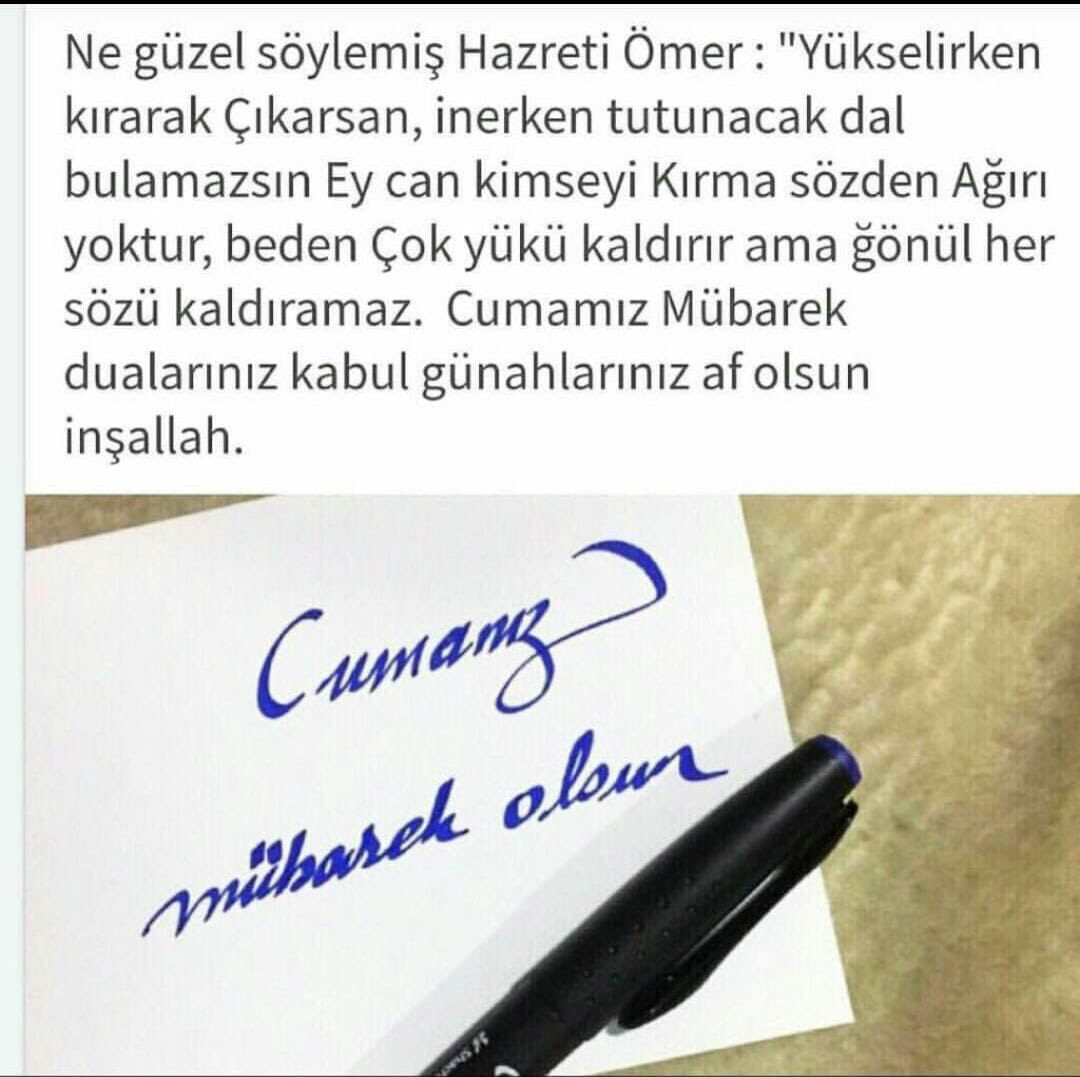 Ne güzel söylemiş Hazreti Ömer : "Yükselirken
kırarak Çıkarsan, inerken tutunacak dal
bulamazsın Ey can kimseyi Kırma sözden Ağırı
yoktur, beden Çok yükü kaldırır ama ğönül her
sözü kaldıramaz.  Cumamız Mübarek
dualarınız kabul günahlarınız af olsun
inşallah.
Cumanız
mübarek olsun